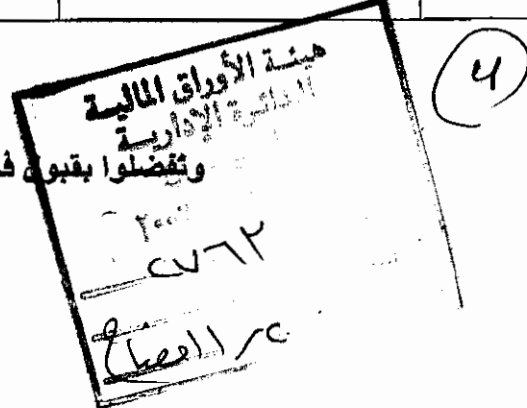 هيئة الأوراق المالية
الدائرة الإدارية
وتفضلوا بقبول
٢٧٦٢
4